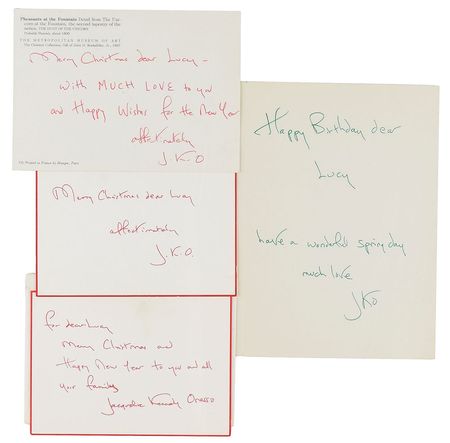 Pheasants at the Fountain Detail from The Uni-
corn at the Fountain, the second tapestry of the
series, THE HUNT OF THE UNICORN
Probably Brussels, about 1500
THE METROPOLITAN MUSEUM OF ART
The Cloisters Collection, Gift of John D. Rockefeller, Jr., 1937
Merry Christmas dear Lucy –
with MUCH LOVE to you
and Happy Wishes for the New Year
affectionately
J.K.O
Printed in France by Draeger, Paris
Merry Christmas dear Lucy
affectionately
J.K.O.
for dear Lucy
Merry Christmas and
Happy New Year to you and all
your family
Jacqueline Kennedy Onassis
Happy Birthday dear
Lucy
have a wonderful spring day
much love
JKO